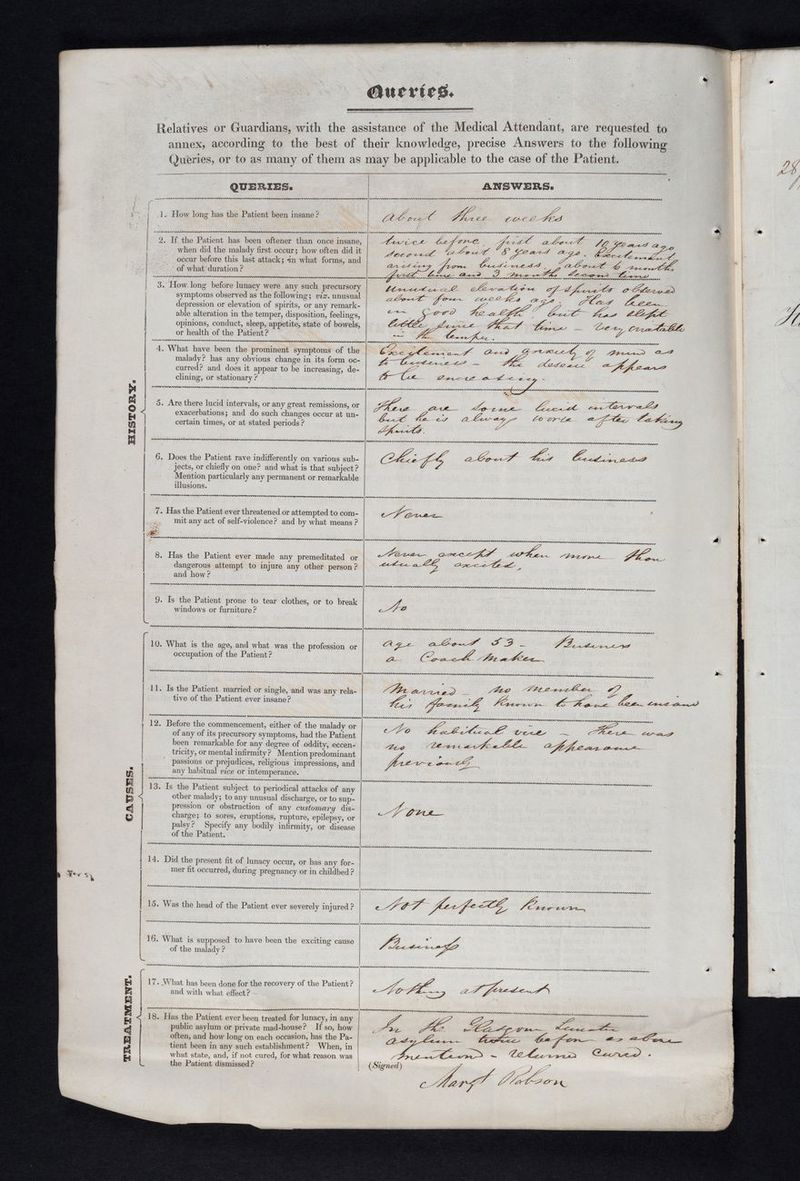 Queries.
Relatives or Guardians, with the assistance of the Medical Attendant, are requested to
annex, according to the best of their knowledge, precise Answers to the following
Queries, or to as many of them as may be applicable to the case of the Patient.
QUERIES.
ANSWERS.
HISTORY.
1. How long has the Patient been insane?
About three weeks
2. If the Patient has been oftener than once insane,
when did the malady first occur; how often did it
occur before this last attack; in what forms, and
of what duration?
twice before first about 10 years ago
second about 8 years ago. Excitement
arising from business, about 6 months
first time and 3 month second time
3. How long before lunacy were any such precursory
symptoms observed as the following; viz. unusual
depression or elevation of spirits, or any remark-
able alteration in the temper, disposition, feelings,
opinions, conduct, sleep, appetite, state of bowels,
or health of the Patient?
unusual elevation of spirits observed
about four weeks ago. Has been
in good health but has slept
little since that time – very irratable
in the temper.
4. What have been the prominent symptoms of the
malady? has any obvious change in its form oc-
curred? and does it appear to be increasing, de-
clining, or stationary?
Excitement and anxiety of mind as
to business – the disease appears
to be increasing.
5. Are there lucid intervals, or any great remissions, or
exacerbations; and do such changes occur at un-
certain times, or at stated periods?
There are some lucid intervals
but he is always worse after taking
Spirits.
6. Does the Patient rave indifferently on various sub-
jects, or chiefly on one? and what is that subject?
Mention particularly any permanent or remarkable
illusions.
Chiefly about his business
7. Has the Patient ever threatened or attempted to com-
mit any act of self-violence? and by what means?
Never
8. Has the Patient ever made any premeditated or
dangerous attempt to injure any other person?
and how?
Never except when more than
usually excited,
9. Is the Patient prone to tear clothes, or to break
windows or furniture?
No
CAUSES.
10. What is the age, and what was the profession or
occupation of the Patient?
age about 53 – Business
a Coach Maker
11. Is the Patient married or single, and was any rela-
tive of the Patient ever insane?
Married – no member of
his family known to have been insane
12. Before the commencement, either of the malady or
of any of its precursory symptoms, had the Patient
been remarkable for any degree of oddity, eccen-
tricity, or mental infirmity? Mention predominant
passions or prejudices, religious impressions, and
any habitual vice or intemperance.
No habitual vice – There was
no remarkable appearance
previously
13. Is the Patient subject to periodical attacks of any
other malady; to any unusual discharge, or to sup-
pression or obstruction of any customary dis-
charge; to sores, eruptions, rupture, epilepsy, or
palsy? Specify any bodily infirmity, or disease
of the Patient.
None
14. Did the present fit of lunacy occur, or has any for-
mer fit occurred, during pregnancy or in childbed?
15. Was the head of the Patient ever severely injured?
Not perfectly known
16. What is supposed to have been the exciting cause
of the malady?
Business
TREATMENT.
17. What has been done for the recovery of the Patient?
and with what effect?
Nothing at present
18. Has the Patient ever been treated for lunacy, in any
public asylum or private mad-house? If so, how
often, and how long on each occasion, has the Pa-
tient been in any such establishment? When, in
what state, and, if not cured, for what reason was
the Patient dismissed?
In the Glasgow Lunatic
asylum twice before as above
mentiond – returned Cured.
(Signed)
Margt Robson
28